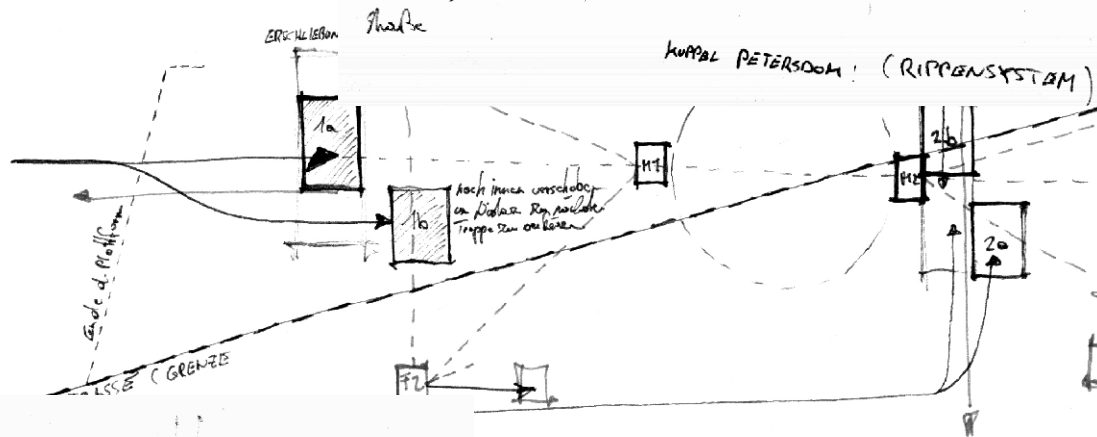 ERSCHLIEßUN
Straße
KUPPEL PETERSDOM: (RIPPENSYSTEM)
1a
2b
M1
M2
noch innen verschoben
1b
2a
Ende d. Plattform
TRASSE / GRENZE
F2